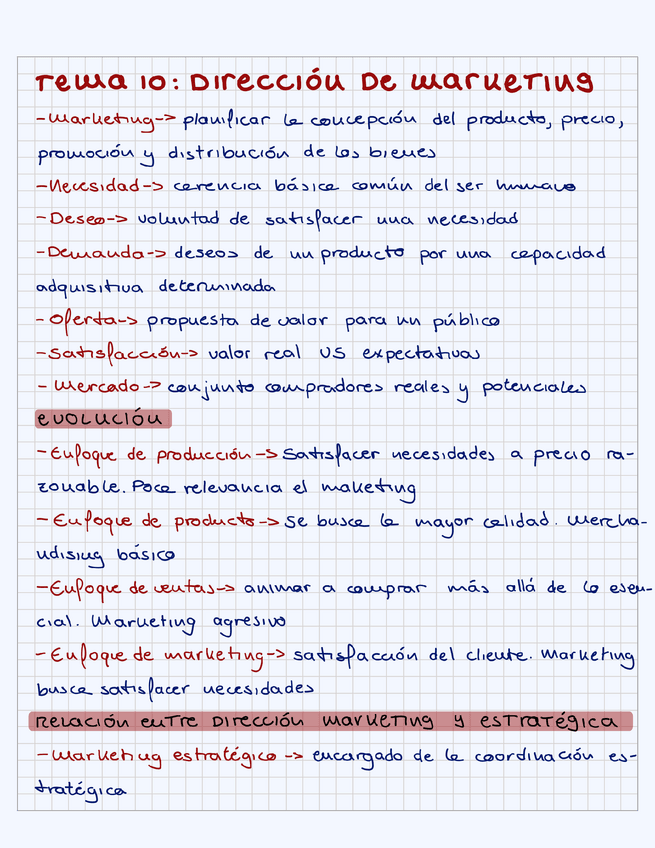 Tema 10: Dirección De marketing
-Marketing-> planificar la concepción del producto, precio,
promoción y distribución de los bienes
-Necesidad-> carencia básica común del ser humano
-Deseo-> voluntad de satisfacer una necesidad
-Demanda-> deseos de un producto por una capacidad
adquisitiva determinada
- Oferta-> propuesta de valor para un público
-Satisfacción-> valor real VS expectativas
- Mercado-> conjunto compradores reales y potenciales
evolución
-Enfoque de producción-> Satisfacer necesidades a precio ra-
zonable. Poca relevancia el maketing
-Enfoque de producto-> Se busca la mayor calidad. Mercha-
ndising básico
-Enfoque de ventas-> animar a comprar más allá de lo esen-
cial. Marketing agresivo
-Enfoque de marketing-> satisfacción del cliente. Marketing
busca satisfacer necesidades
Relación entre Dirección marketing y estratégica
-Marketing estratégico-> encargado de la coordinación es-
tratégica